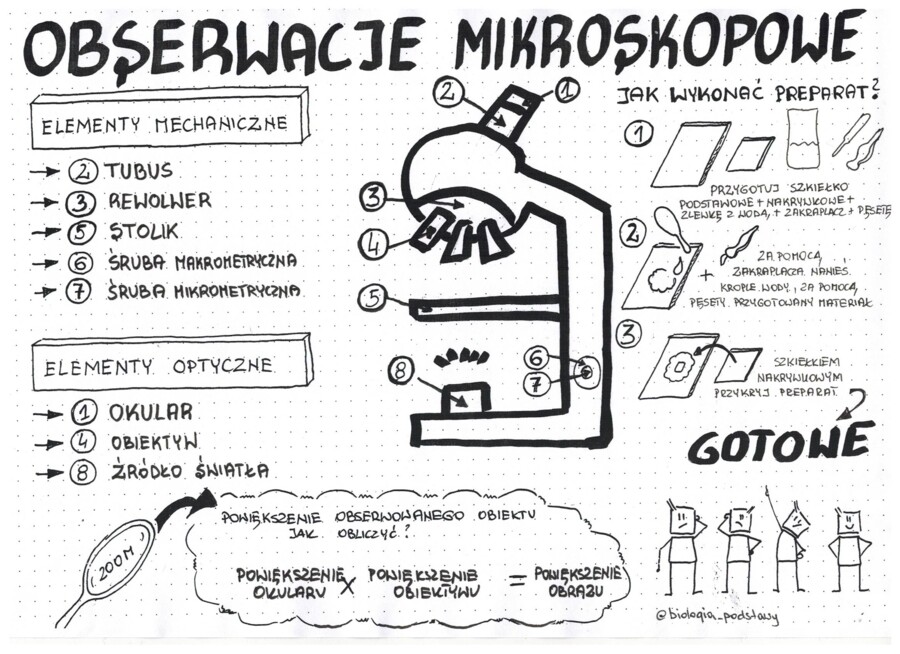 OBSERWACJE MIKROSKOPOWE
ELEMENTY MECHANICZNE
② TUBUS
③ REWOLWER
⑤ STOLIK
⑥ ŚRUBA MAKROMETRYCZNA
⑦ ŚRUBA MIKROMETRYCZNA
ELEMENTY OPTYCZNE
① OKULAR
④ OBIEKTYW
⑧ ŹRÓDŁO ŚWIATŁA
2
1
3
4
5
6
7
8
JAK WYKONAĆ PREPARAT?
1
PRZYGOTUJ SZKIEŁKO
PODSTAWOWE + NAKRYWKOWE +
ZLEWKĘ Z WODĄ, + ZAKRAPLACZ + PĘSETĘ
2
+
ZA POMOCĄ
ZAKRAPLACZA NANIEŚ
KROPLE WODY, ZA POMOCĄ
PĘSETY PRZYGOTOWANY MATERIAŁ
3
SZKIEŁKIEM
NAKRYWKOWYM
PRZYKRYJ PREPARAT
GOTOWE
ZOOM
POWIĘKSZENIE OBSERWOWANEGO OBIEKTU
JAK OBLICZYĆ?
POWIĘKSZENIE OKULARU X POWIĘKSZENIE OBIEKTYWU = POWIĘKSZENIE OBRAZU
@biologia_podstawy